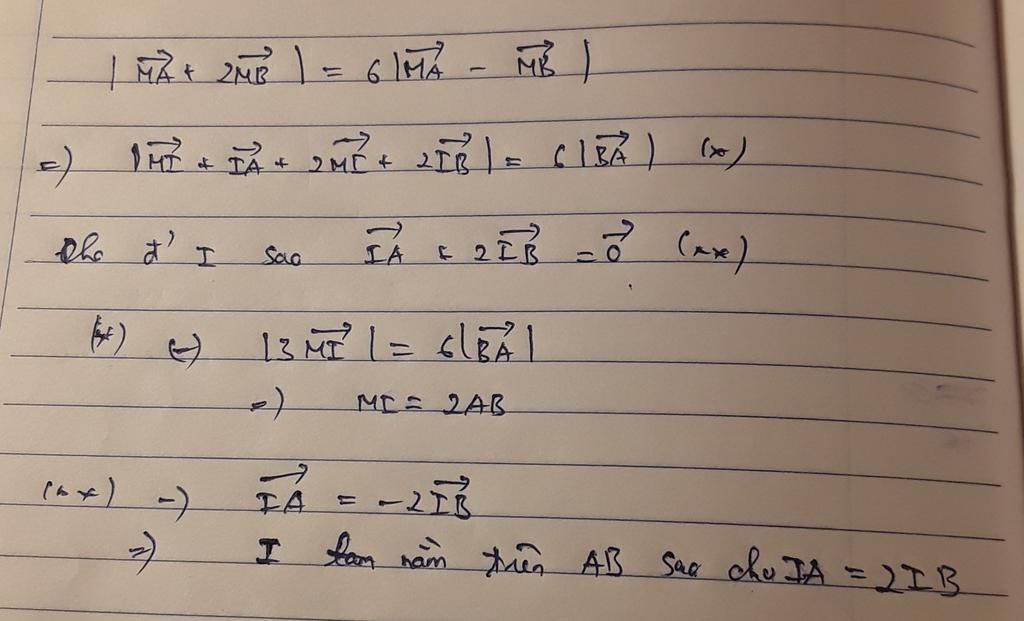 |MA⃗ + 2MB⃗| = 6|MA⃗ - MB⃗|
=) |MI⃗ + IA⃗ + 2MI⃗ + 2IB⃗| = 6|BA⃗| (*)
Cho đ' I sao IA⃗ + 2IB⃗ = 0⃗ (**)
(*) (-) |3MI⃗| = 6|BA⃗|
=) MI = 2AB
(**) -) IA⃗ = -2IB⃗
=) I nằm trên AB sao cho IA = 2IB